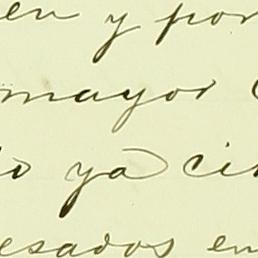 en y por
mayor
ya
esados en